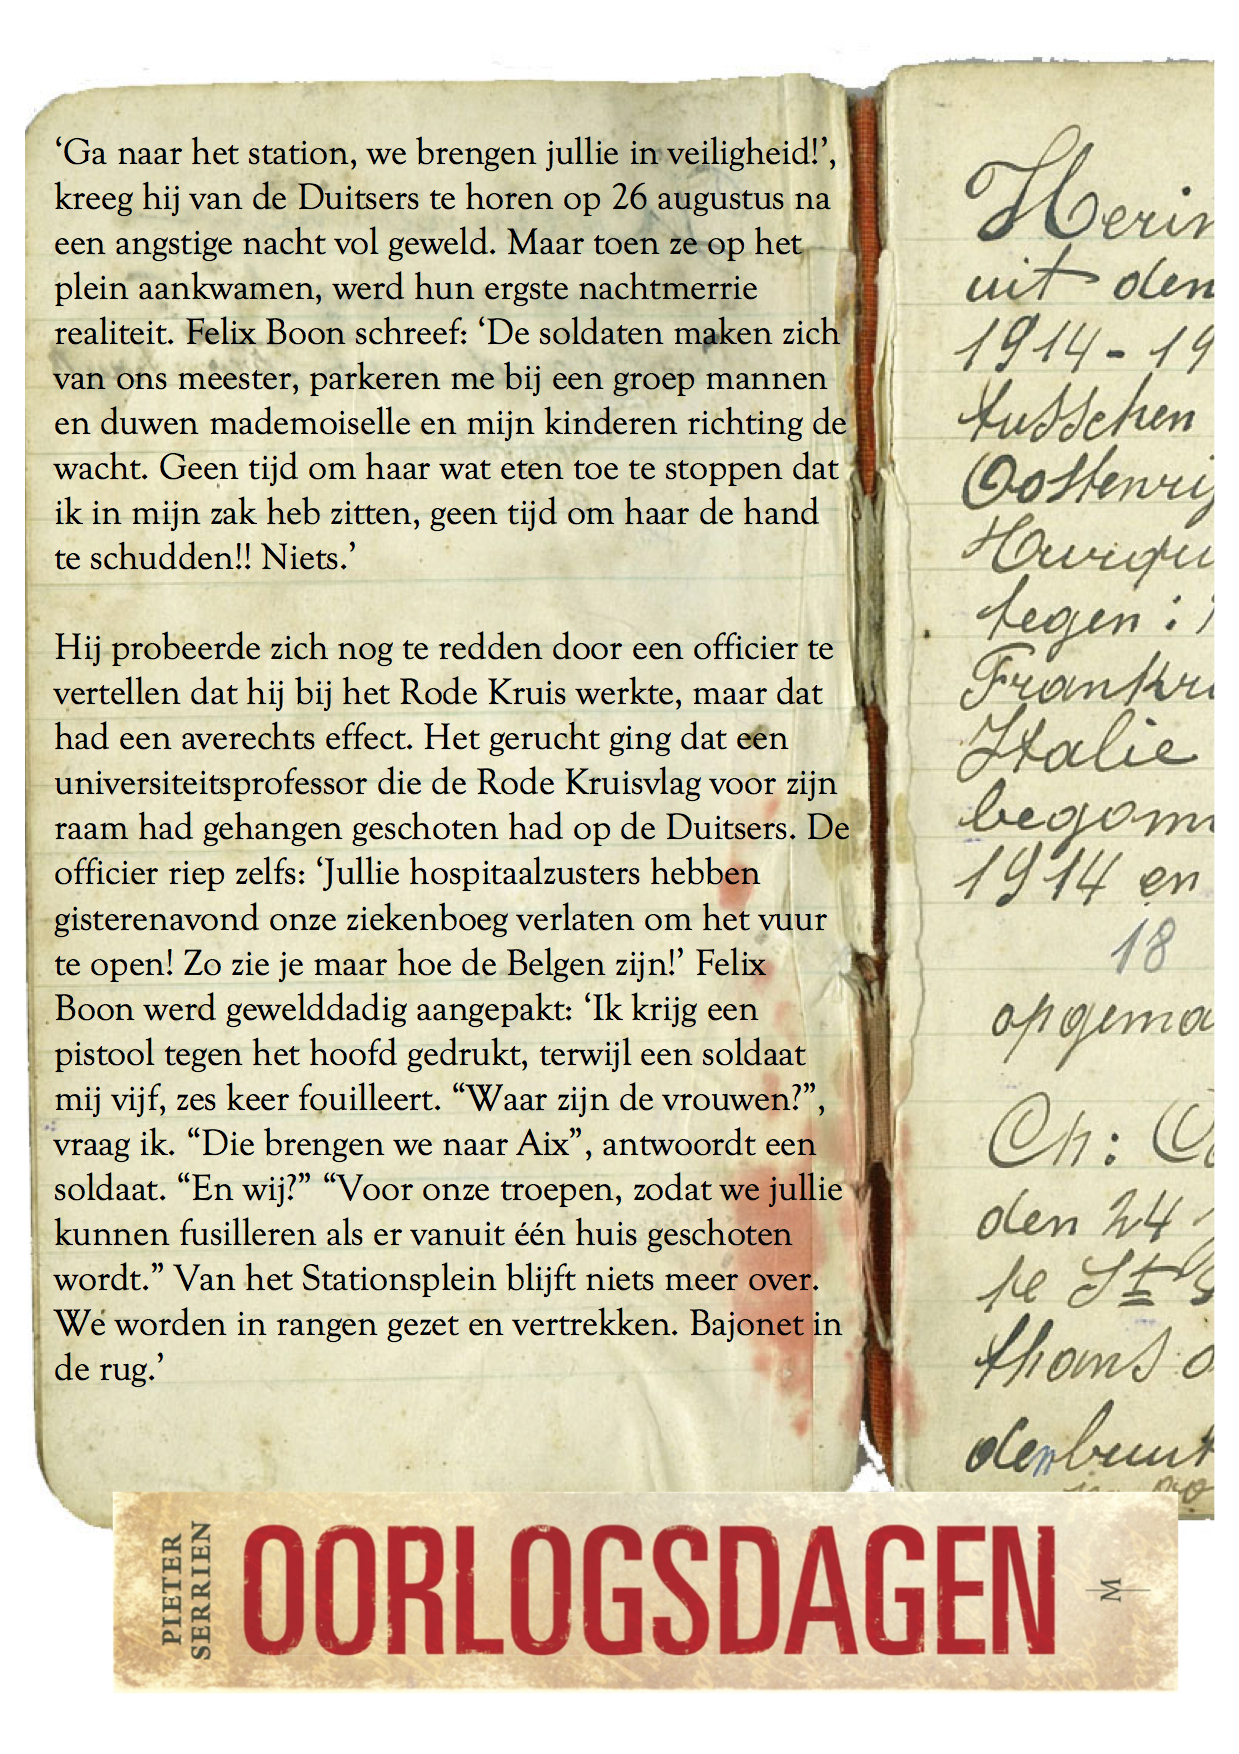 ‘Ga naar het station, we brengen jullie in veiligheid!’,
kreeg hij van de Duitsers te horen op 26 augustus na
een angstige nacht vol geweld. Maar toen ze op het
plein aankwamen, werd hun ergste nachtmerrie
realiteit. Felix Boon schreef: ‘De soldaten maken zich
van ons meester, parkeren me bij een groep mannen
en duwen mademoiselle en mijn kinderen richting de
wacht. Geen tijd om haar wat eten toe te stoppen dat
ik in mijn zak heb zitten, geen tijd om haar de hand
te schudden!! Niets.’
Hij probeerde zich nog te redden door een officier te
vertellen dat hij bij het Rode Kruis werkte, maar dat
had een averechts effect. Het gerucht ging dat een
universiteitsprofessor die de Rode Kruisvlag voor zijn
raam had gehangen geschoten had op de Duitsers. De
officier riep zelfs: ‘Jullie hospitaalzusters hebben
gisterenavond onze ziekenboeg verlaten om het vuur
te open! Zo zie je maar hoe de Belgen zijn!’ Felix
Boon werd gewelddadig aangepakt: ‘Ik krijg een
pistool tegen het hoofd gedrukt, terwijl een soldaat
mij vijf, zes keer fouilleert. “Waar zijn de vrouwen?”,
vraag ik. “Die brengen we naar Aix”, antwoordt een
soldaat. “En wij?” “Voor onze troepen, zodat we jullie
kunnen fusilleren als er vanuit één huis geschoten
wordt.” Van het Stationsplein blijft niets meer over.
We worden in rangen gezet en vertrekken. Bajonet in
de rug.’
Herin
uit den
1914-19
tusschen
Oostenrij
tegen:
Frankr
Italie
begonn
1914 en
18
opgema
Ch:
den 24
thans
PIETER
SERRIEN
OORLOGSDAGEN
M